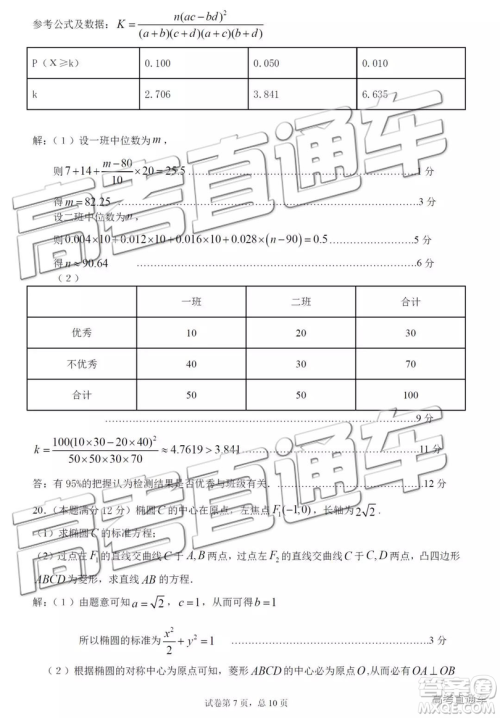 参考公式及数据：K = n(ac−bd)² / (a+b)(c+d)(a+c)(b+d)
P（X≥k） 0.100 0.050 0.010
k 2.706 3.841 6.635
解：（1）设一班中位数为 m，
则 7+14+ (m−80)/10 ×20=25.5 ……1 分
得 m=82.25 ……3 分
设二班中位数为 n，
则 0.004×10+0.012×10+0.016×10+0.028×(n−90)=0.5 ……5 分
得 n≈90.64 ……6 分
（2）
一班 二班 合计
优秀 10 20 30
不优秀 40 30 70
合计 50 50 100
……9 分
k = 100(10×30−20×40)² / 50×50×30×70 ≈4.7619>3.841 ……11 分
答：有 95%的把握认为检测结果是否优秀与班级有关．……12 分
20.（本题满分 12 分）椭圆 C 的中心在原点，左焦点 F₁(−1,0)，长轴为 2√2．
（1）求椭圆 C 的标准方程；
（2）过左焦点 F₁ 的直线交曲线 C 于 A,B 两点，过左焦点 F₂ 的直线交曲线 C 于 C,D 两点，凸四边形
ABCD 为菱形，求直线 AB 的方程．
解：（1）由题意可知 a=√2，c=1，从而可得 b=1
所以椭圆的标准为 x²/2 + y² = 1 ……3 分
（2）根据椭圆的对称中心为原点可知，菱形 ABCD 的中心必为原点 O，从而必有 OA⊥OB
试卷第 7 页，总 10 页
高考直通车
高考直通车
高考直通车
高考直通车